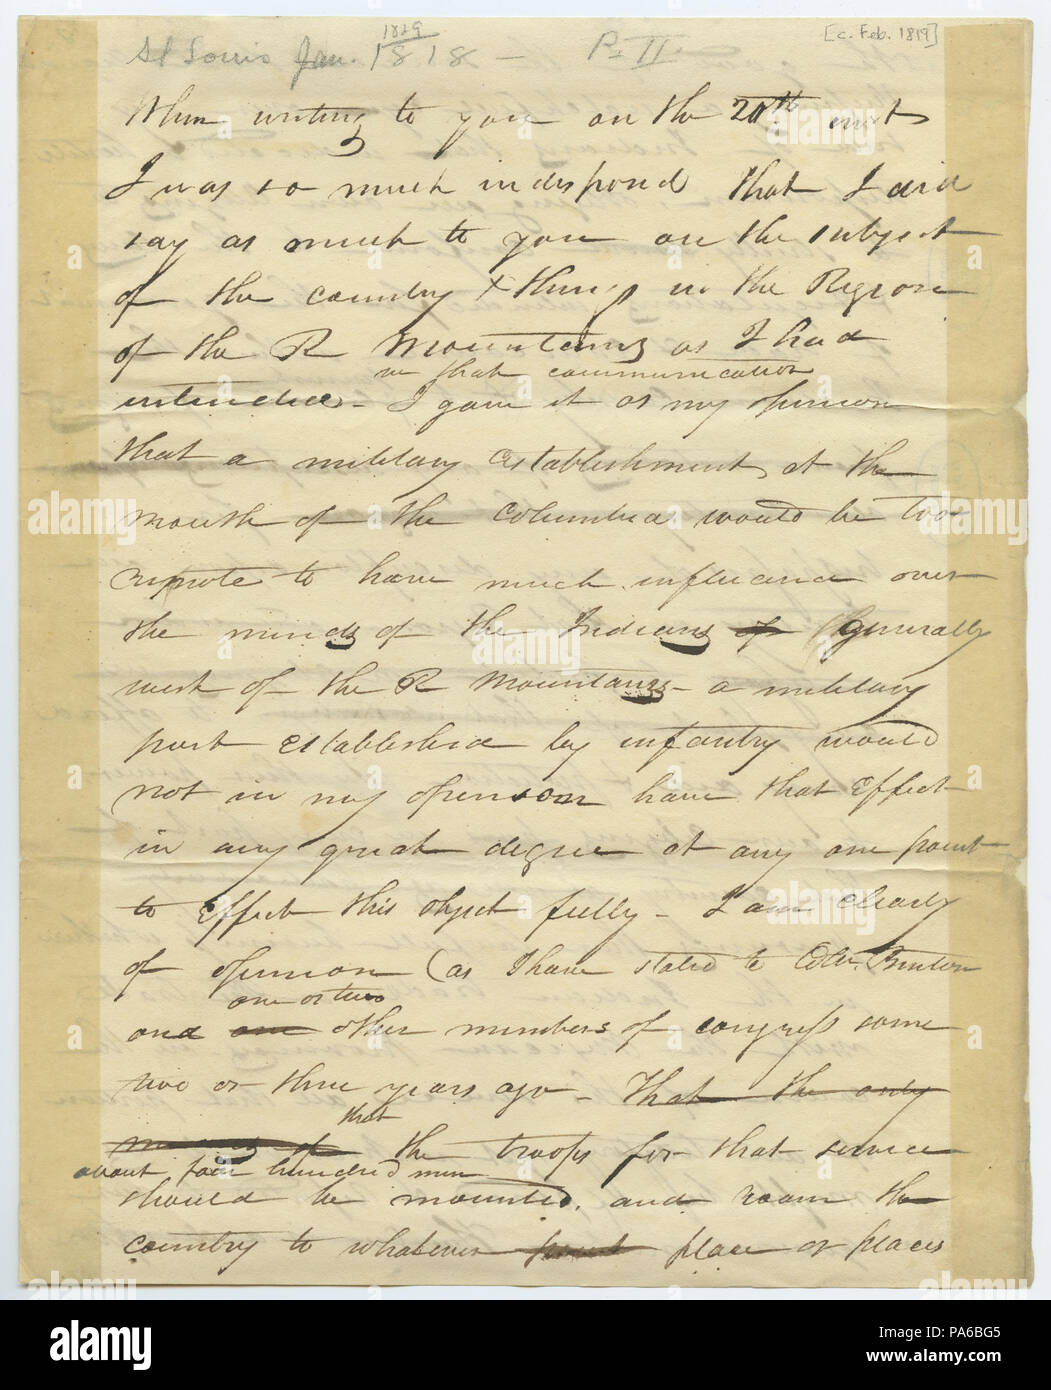 St Louis Jan. 1818 — P. II.
1829
[c. Feb. 1819]
When writing to you on the 20th inst
I was so much indisposed that I did
say as much to you on the subject
of the country & things in the Region
of the R Mountains as I had
in that communication
intended - I gave it as my opinion
that a military Establishment at the
mouth of the Columbia would be too
remote to have much influence over
the minds of the Indians of (generally
west of the R Mountains - a military
post Established by infantry would
not in my openion have that Effect
in any great degree at any one point
to Effect this object fully - I am clearly
of opinion (as I have stated to Colo. Benton
one or two
and one other members of congress some
two or three years ago - That the only
that
the troops for that service
about four hundred men
should be mounted. and roam the
country to whatever point place or places
alamy
a
alamy
Image ID: PA6BG5
www.alamy.com